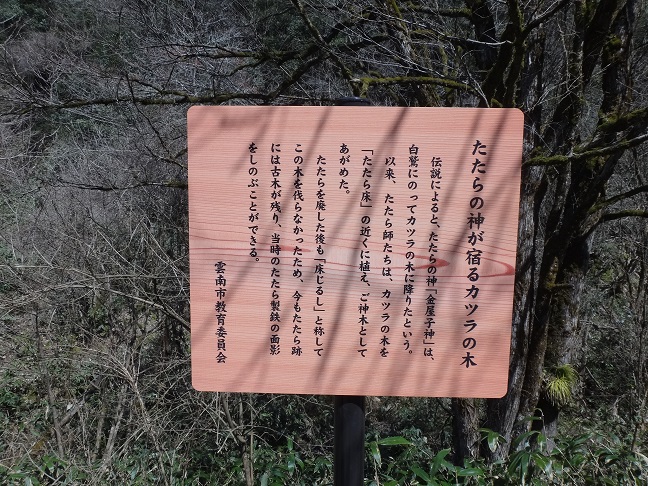 たたらの神が宿るカツラの木
伝説によると、たたらの神「金屋子神」は、
白鷺にのってカツラの木に降りたという。
以来、たたら師たちは、カツラの木を
「たたら床」の近くに植え、ご神木として
あがめた。
たたらを廃した後も「床じるし」と称して
この木を伐らなかったため、今もたたら跡
には古木が残り、当時のたたら製鉄の面影
をしのぶことができる。
雲南市教育委員会